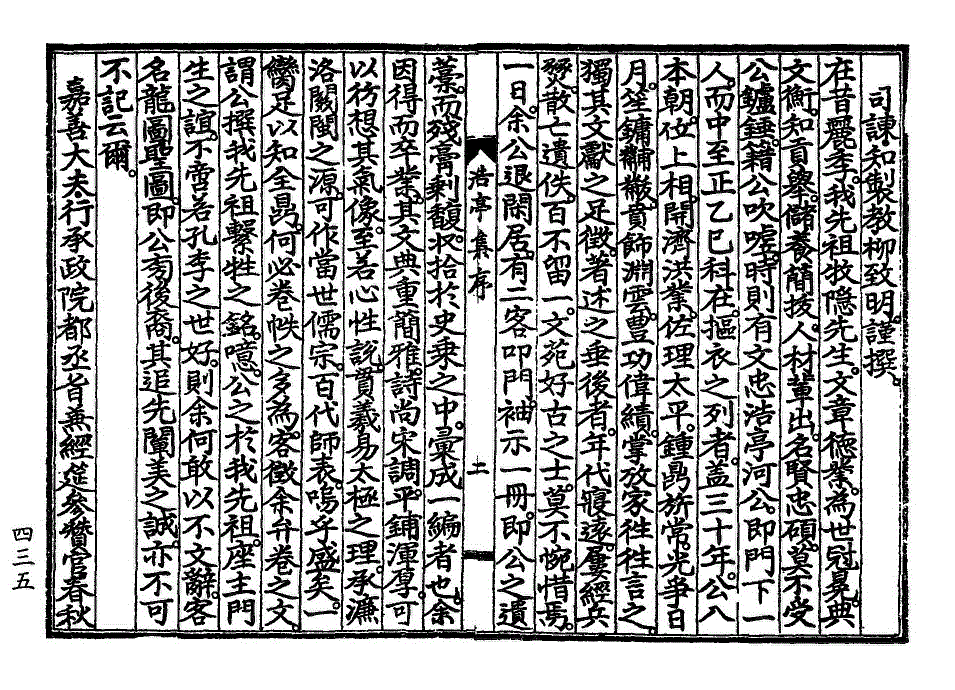 司諫知製敎柳致明謹撰
在昔麗季我先祖牧隱先生文章德業爲世冠冕典
文衡知貢擧儲養簡拔人材輩出名賢忠碩莫不受
公鑪錘籍公吹噓時則有文忠浩亭河公即門下一
人而中至正乙巳科在摳衣之列者盖三十年公入
本朝位上相開濟洪業佐理太平鍾鼎旂常光爭日
月笙鏞黼黻賁飾淵雲豊功偉績掌故家徃徃言之
獨其文獻之足徵著述之垂後者年代寢遠屢經兵
燹散亡遺佚百不留一文苑好古之士莫不惋惜焉
一日余公退閑居有二客叩門袖示一冊即公之遺
浩亭集序
二
藁而殘膏剩馥收拾於史乘之中彙成一編者也余
因得而卒業其文典重簡雅詩尚宋調平鋪渾厚可
以彷想其氣像至若心性說貫羲易太極之理承濂
洛關閩之源可作當世儒宗百代師表嗚乎盛矣一
臠足以知全鼎何必卷帙之多爲客徵余弁卷之文
謂公撰我先祖繫牲之銘噫公之於我先祖座主門
生之誼不啻若孔李之世好則余何敢以不文辭客
名龍圖聖圖即公秀後裔其追先闡美之誠亦不可
不記云爾
嘉善大夫行承政院都丞旨兼經筵參贊官春秋
四三五